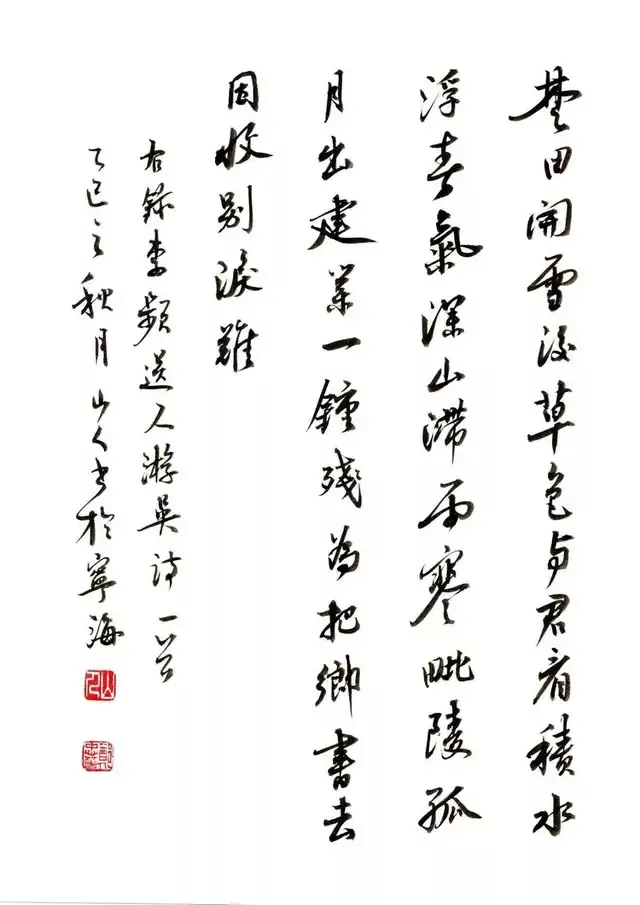 楚田開雪後草色与君看積水
浮春氣深山滯雨寒毗陵孤
月出建業一鍾殘為把鄉書去
因收別淚難
右錄李頻送人游吳詩一首
乙巳之秋月山人書於寧海
山人